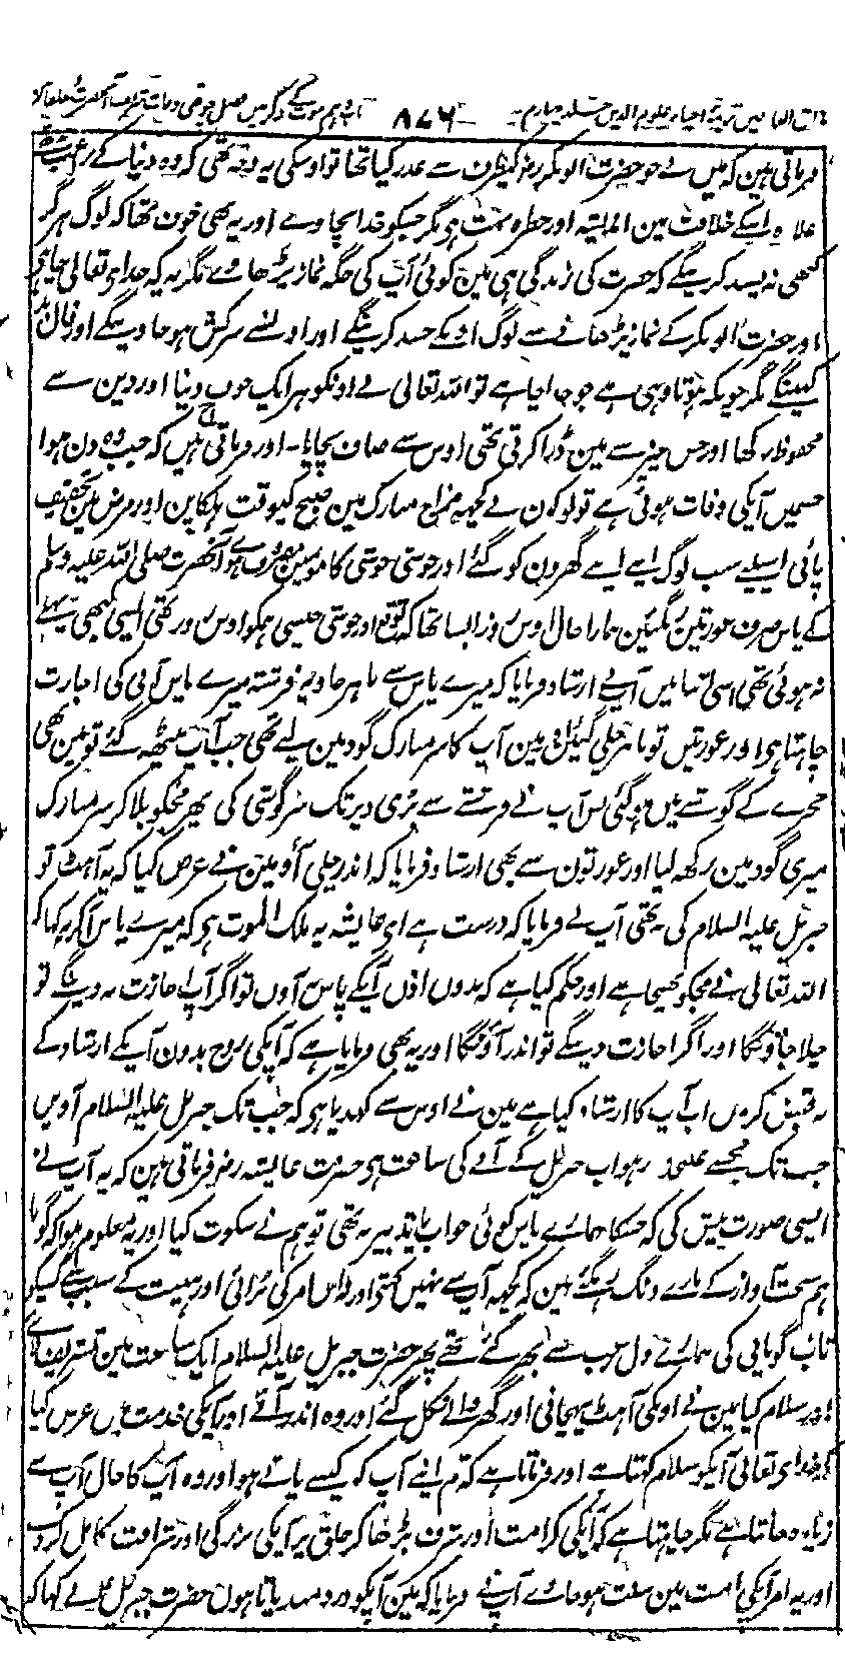 مذاق العارفین ترجمۂ احیاء علوم الدین جلد چہارم ۸۷۶ باب دہم موت کے ذکر میں فصل چوتھی وفات شریف آنحضرت صلعم
فرماتی ہین کہ میں نے جو حضرت ابو بکر رضہ کیطرف سے عذر کیا تھا تو اوسکی یہ وجہ تھی کہ وہ دنیا کے
علاوہ اسکے خلافت مین اندیشہ اور خطرہ بہت ہو مگر جسکو خدا بچاوے اور یہ بھی خوف تھا کہ لوگ ہرگز
کبھی نہ پسند کرینگے کہ حضرت کی زندگی ہی مین کوئی آپ کی جگہ نماز پڑھاوے مگر یہ کہ خدای تعالی چاہی
اور حضرت ابو بکر کے نماز پڑھانے سے لوگ انکے حسد کرینگے اور اونسے سرکش ہو جاوینگے اور فال بد
کہینگے مگر چونکہ ہوتا وہی ہے جو خدا چاہے تو اللہ تعالی نے اونکو ہر ایک خوف دنیا اور دین سے
محفوظ رکھا اور جس چیز سے مین ڈرا کرتی تھی اوس سے صاف بچایا۔ اور فرماتی ہیں کہ جب وہ دن ہوا
جسمیں آپکی وفات ہوئی ہے تو لوگون نے کچھ مزاج مبارک مین صبح کیوقت ہلکاپن اور مرض مین تخفیف
پائی اسلیے سب لوگ اپنے اپنے گھرون کو گئے اور خوشی خوشی کامون مین مصروف ہوے آنحضرت صلی اللہ علیہ وسلم
کے پاس صرف عورتین رہگئین ہمارا حال اوس روز ایسا تھا کہ توقع اور خوشی جیسی ہمکو اوس روز تھی ایسی کبھی پہلے
نہ ہوئی تھی اسی اثنا میں آپنے ارشاد فرمایا کہ میرے پاس سے باہر جاؤ یہ فرشتہ میرے پاس آنے کی اجازت
چاہتا ہو اور عورتیں تو باہر چلی گئین مین آپ کا سر مبارک گود مین لیے تھی جب آپ بیٹھ گئے تو مین بھی
حجرے کے گوشے میں ہو گئی پس آپ نے فرشتے سے بڑی دیر تک سرگوشی کی پھر مجکو بلا کر سر مبارک
میری گود مین رکھ لیا اور عورتون سے بھی ارشاد فرمایا کہ اندر چلی آؤ مین نے عرض کیا کہ یہ آہٹ تو
جبریل علیہ السلام کی نہ تھی آپ نے فرمایا کہ درست ہے ای عایشہ یہ ملک الموت ہو کہ میرے پاس آکر یہ کہا کہ
اللہ تعالی نے مجکو بھیجا ہے اور حکم کیا ہے کہ بدون اذن آپکے پاس نہ آوں تو اگر آپ اجازت نہ دینگے تو
چلا جاؤنگا اور اگر اجازت دینگے تو اندر آؤنگا اور یہ بھی فرمایا ہے کہ آپکی روح بدون آپکے ارشاد کے
نہ قبض کروں اب آپ کا کیا ارشاد ہے مین نے اوس سے کہدیا ہو کہ جب تک جبریل علیہ السلام آویں
جب تک مجھسے علیحدہ رہو اب جبریل کے آنے کی ساعت ہو حضرت عایشہ رضہ فرماتی ہین کہ یہ آپ نے
ایسی صورت پیش کی کہ جسکا ہمارے پاس کوئی جواب یا تدبیر نہ تھی تو ہم نے سکوت کیا اور یہ معلوم ہوا کہ گویا
ہم سخت آواز کے مارے دنگ رہگئے ہین کہ کچھ آپ سے نہیں کہتی اور اس امر کی بڑائی اور ہیبت کے سبب سے کسیکو
تاب گویائی کی ہمارے دل رعب سے بھر گئے تھے پھر حضرت جبریل علیہ السلام ایک ساعت مین تشریف لائے
اور سلام کیا مین نے اونکی آہٹ پہچانی اور گھر والے نکل گئے اور وہ اندر آئے اور آپکی خدمت میں عرض کیا
کہ خدای تعالی آپکو سلام کہتا ہے اور فرماتا ہے کہ تم اپنے آپ کو کیسے پاتے ہو اور وہ آپ کا حال آپ سے
زیادہ جانتا ہے مگر چاہتا ہے کہ آپکی کرامت اور شرف بڑھا کر خلق پر آپکی بزرگی اور شرافت کامل کر دے
اور یہ امر آپکی امت مین سنت ہو جاے آپ نے فرمایا کہ مین آپکو دردمند پاتا ہون حضرت جبریل نے کہا کہ